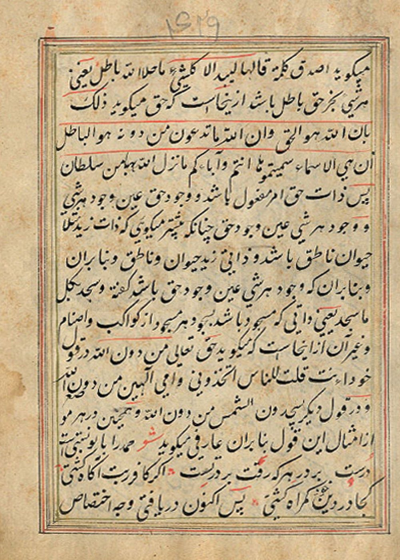 میکوید اصدق کلمة قالها لبید الا کلشیء ما خلا الله باطل یعنی
هر شیء بجز حق باطل باشد ازینجاست که حق میکوید ذلک
بان الله هو الحق وان الله ما تدعون من دونه هو الباطل
ان هی الا اسماء سمیتموها انتم واباءکم ما نزل الله بها من سلطان
پس ذات حق امر مفعول باشد و وجود حق عین وجود هر شی
و وجود هر شی عین وجود حق چنانکه میکوی که ذات زید مثلا
حیوان ناطق باشد و ذاتی زید حیوان و ناطق و بنابران
و بنابران که وجود هر شی عین وجود حق باشد کفته وسجد بکل
ما سجد یعنی ذاتی که مسجود باشد بسجود هر مسجود از کواکب و اصنام
و غیر آن ازینجاست که میکوید حق تعالی من دون الله در قول
خود اءنت قلت للناس اتخذونی وامی الهین من دون الله
و در قول دیکر یسجدون للشمس من دون الله و همچنین در هر مو
از امثال این قول بنابران عارفی میکوید شعر
درست بر در هر که رفت بر در تست اکر کافر زبت آکاه کشتی
کجا در دین خود کمراه کشتی پس اکنون دریافتی وجه اختصاص